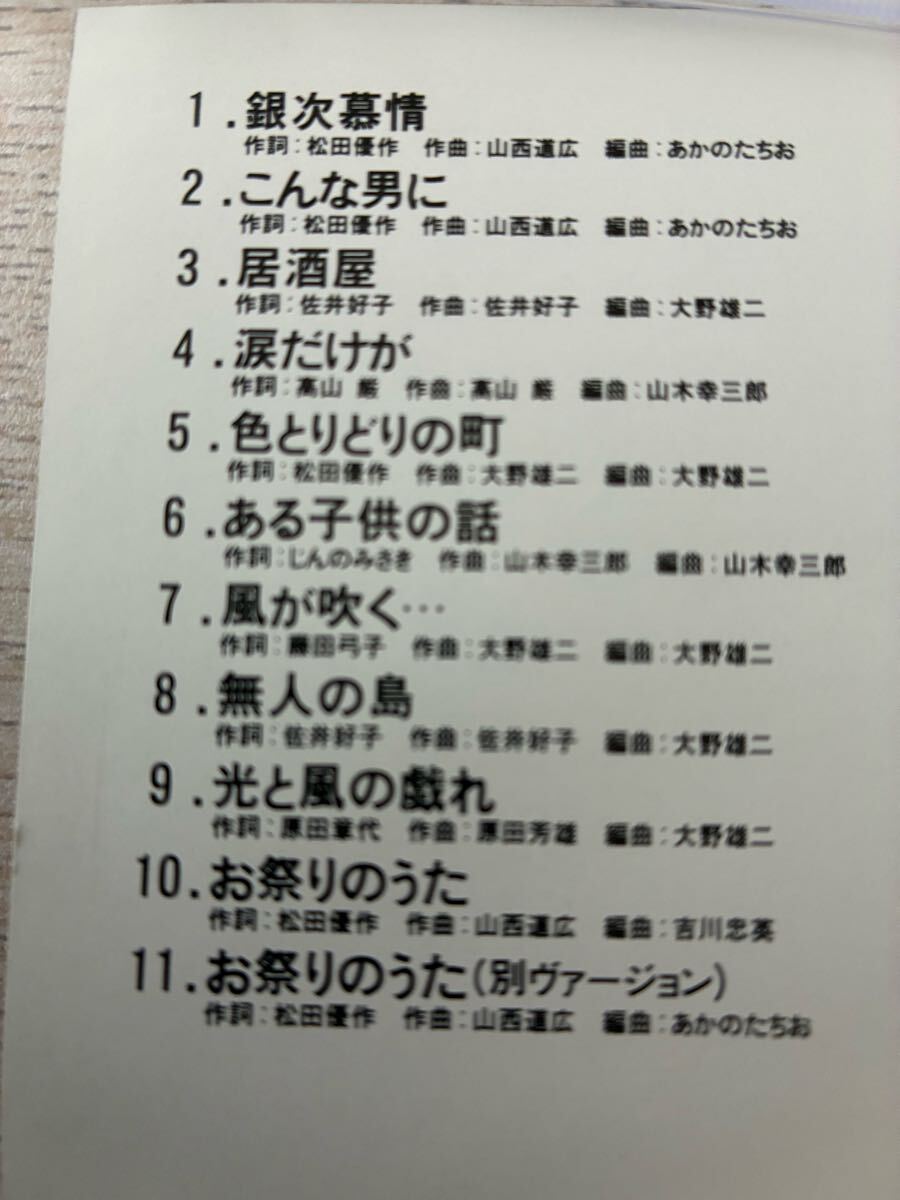 1.銀次慕情
作詞:松田優作 作曲:山西道広 編曲:あかのたちお
2.こんな男に
作詞:松田優作 作曲:山西道広 編曲:あかのたちお
3.居酒屋
作詞:佐井好子 作曲:佐井好子 編曲:大野雄二
4.涙だけが
作詞:高山 厳 作曲:高山 厳 編曲:山木幸三郎
5.色とりどりの町
作詞:松田優作 作曲:大野雄二 編曲:大野雄二
6.ある子供の話
作詞:じんのみさき 作曲:山木幸三郎 編曲:山木幸三郎
7.風が吹く…
作詞:藤田弓子 作曲:大野雄二 編曲:大野雄二
8.無人の島
作詞:佐井好子 作曲:佐井好子 編曲:大野雄二
9.光と風の戯れ
作詞:原田章代 作曲:原田芳雄 編曲:大野雄二
10.お祭りのうた
作詞:松田優作 作曲:山西道広 編曲:吉川忠英
11.お祭りのうた(別ヴァージョン)
作詞:松田優作 作曲:山西道広 編曲:あかのたちお